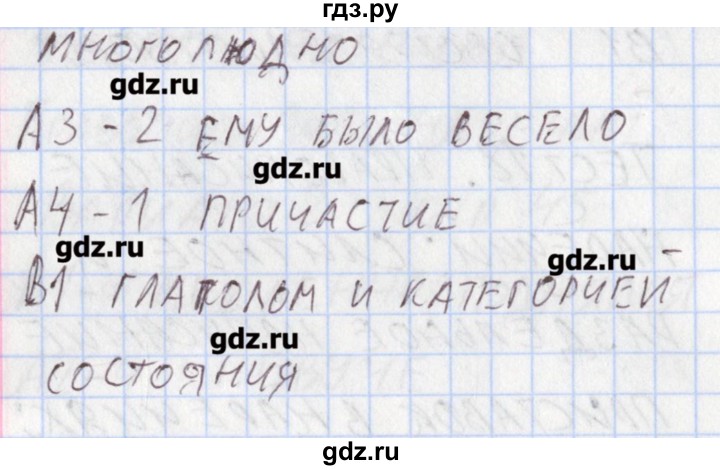 гдз.ру
МНОГОЛЮДНО
gdz.ru
А3 - 2 ЕМУ БЫЛО ВЕСЕЛО
gdz.ru
А4 - 1 ПРИЧАСТИЕ
gdz.ru
gdz.ru
В1 ГЛАГОЛОМ И КАТЕГОРИЕЙ
gdz.ru
СОСТОЯНИЯ
gdz.ru